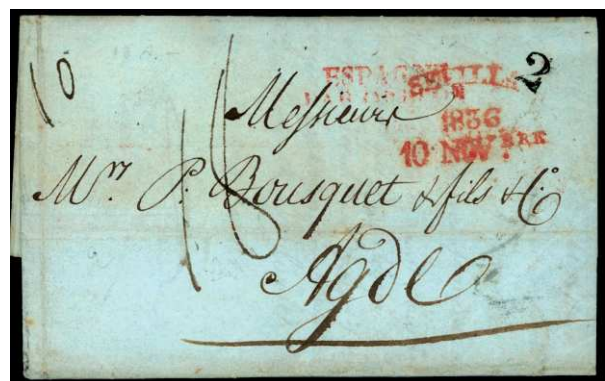 10
ESPAGNE
SEVILLA
2
1836
10 NOV
Messieurs
Mrs. P. Bousquet & fils & Co.
Agde